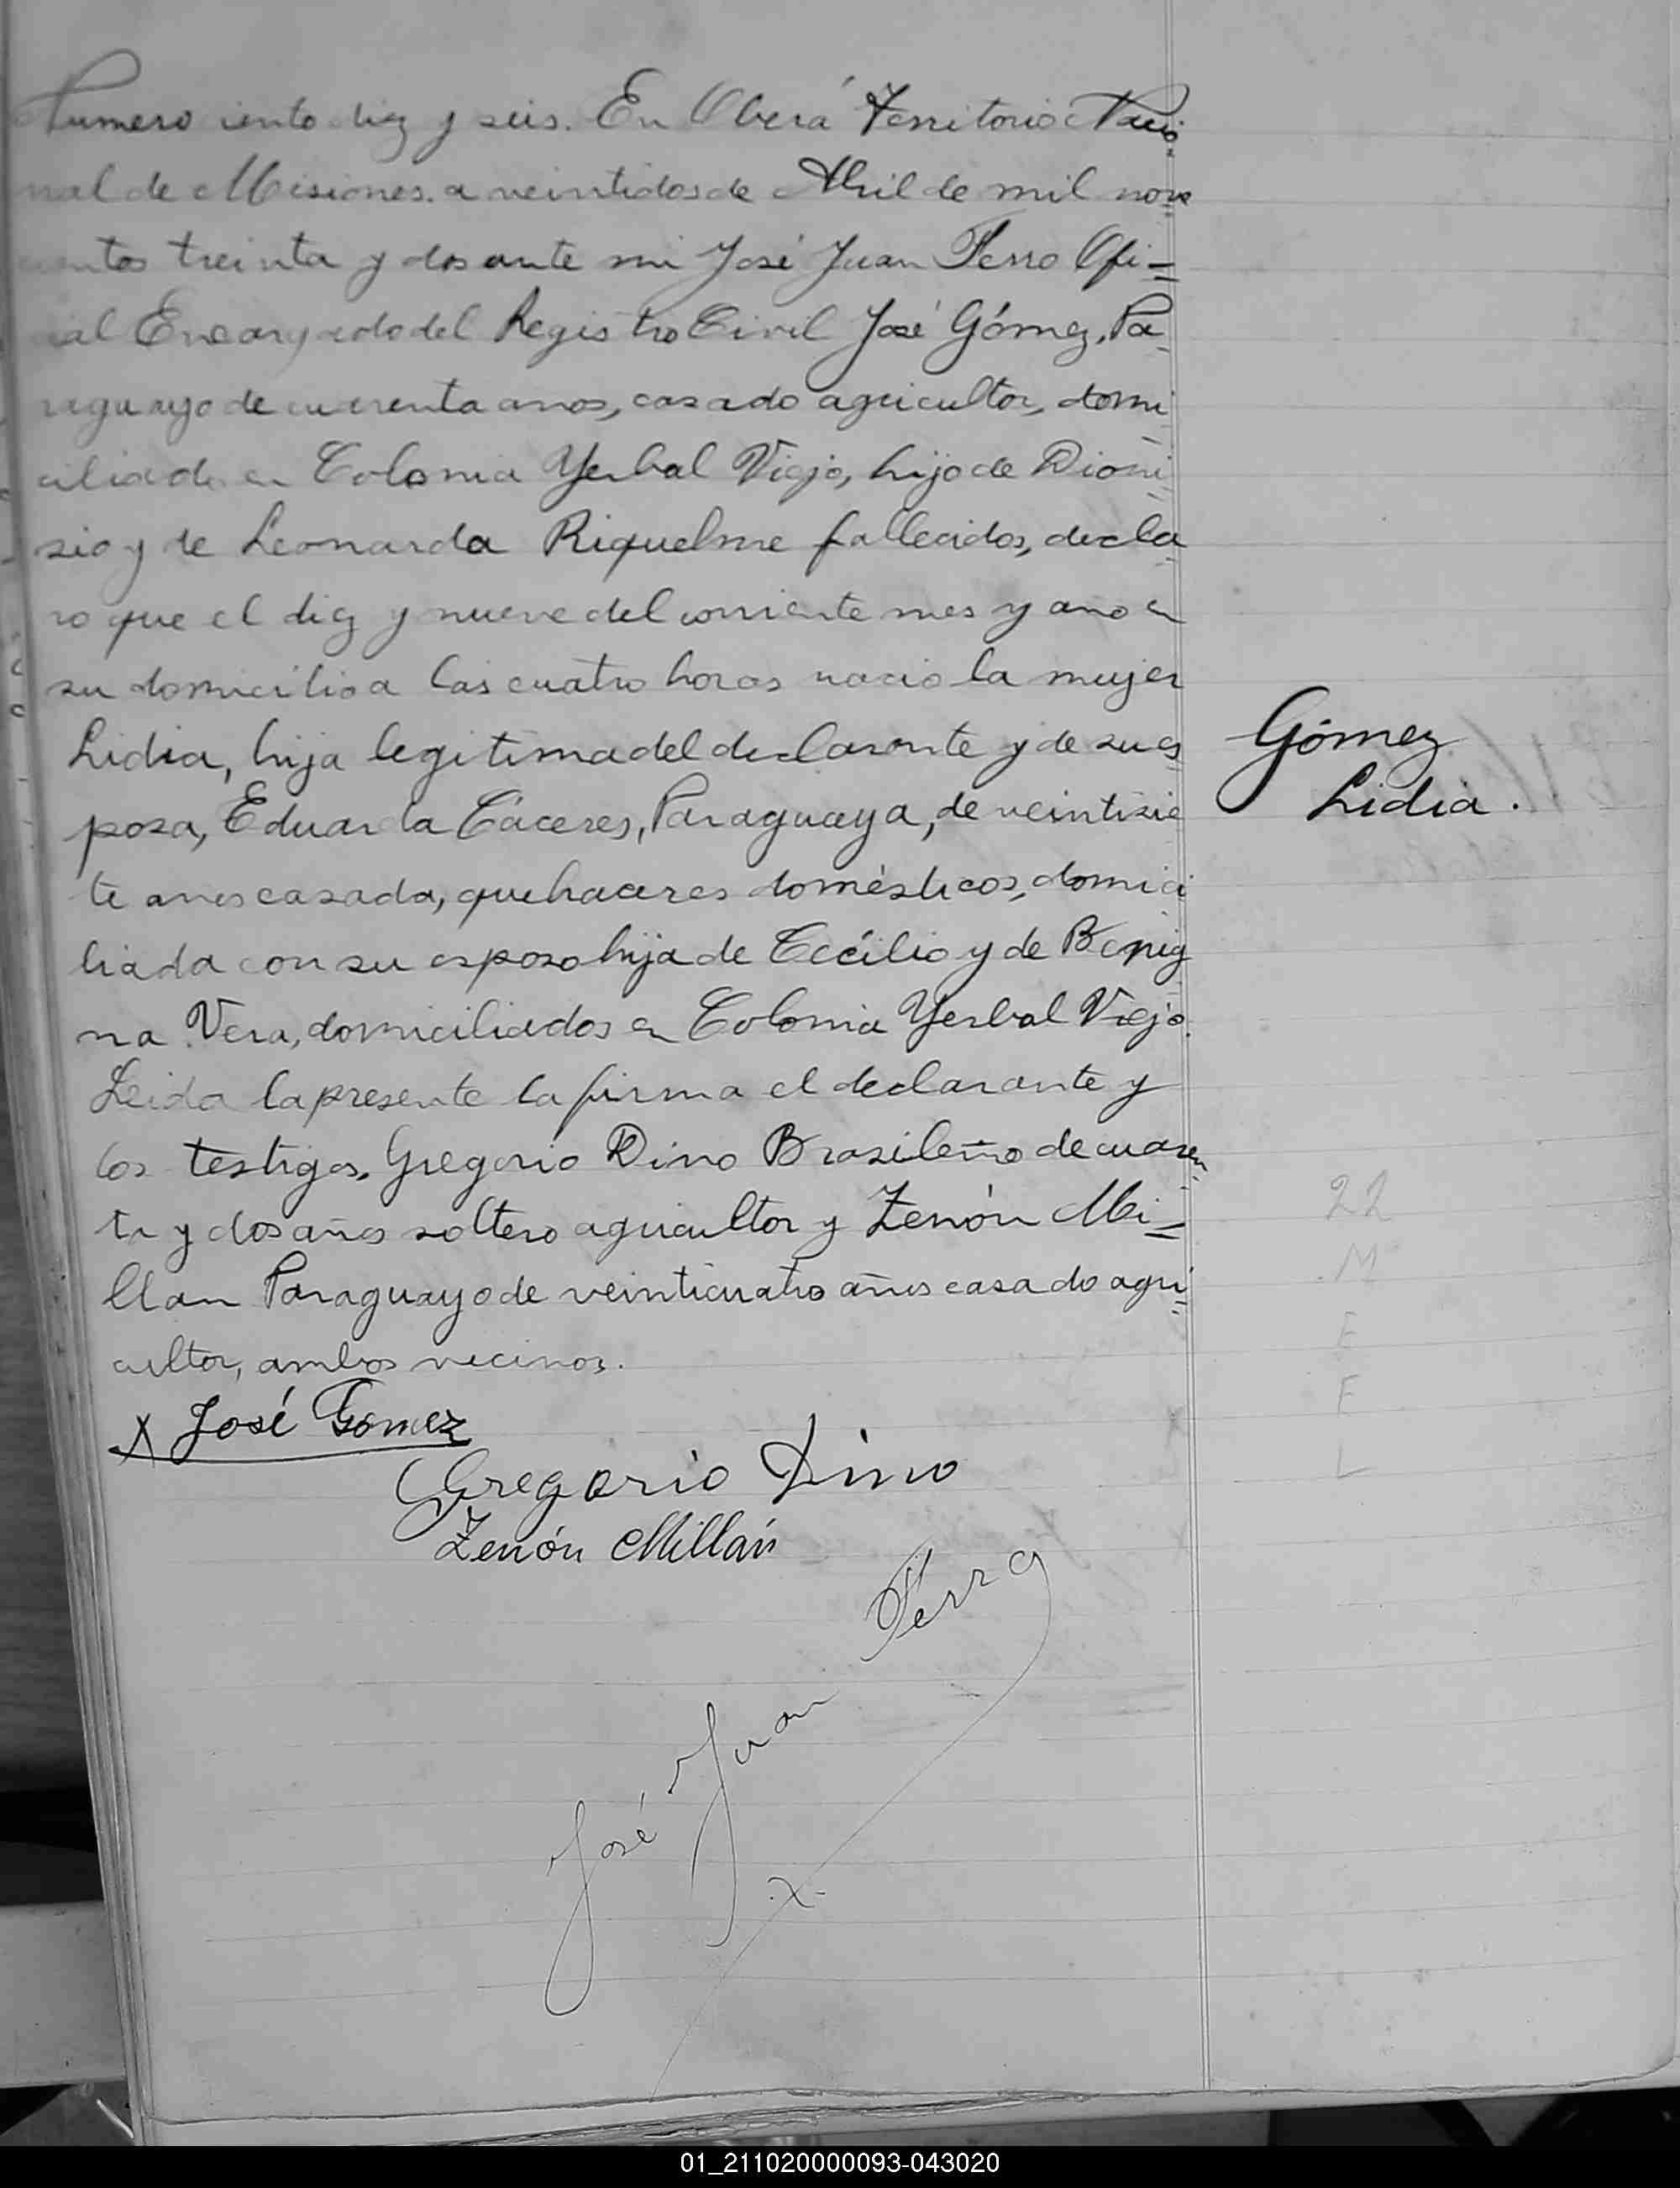 Numero ciento diez y seis. En Oberá Territorio Nacio
nal de Misiones. a veintidos de Abril de mil nove
cientos treinta y dos ante mi José Juan Ferro Ofi=
cial Encargado del Registro Civil José Gómez, Pa
raguayo de cuarenta anos, casado agricultor, domi
ciliado en Colonia Yerbal Viejo, hijo de Dioni
sio y de Leonarda Riquelme fallecidos, decla
ro que el diez y nueve del corriente mes y ano en
su domicilio a las cuatro horas nacio la mujer
Lidia, hija legitima del declarante y de su es
posa, Eduarda Cáceres, Paraguaya, de veintisie
te anos casada, quehaceres domésticos, domici
liada con su esposo hija de Cecilio y de Benig
na Vera, domiciliados en Colonia Yerbal Viejo.
Leida la presente la firma el declarante y
los testigos, Gregorio Dino Brasileño de cuaren
ta y dos años soltero agricultor y Zenón Mi=
llan Paraguayo de veinticuatro años casado agri
cultor, ambos vecinos.
X José Gómez
Gregorio Dino
Zenón Millán
José Juan Ferro
Gómez
Lidia.
22
M
E
F
L
01_211020000093-043020